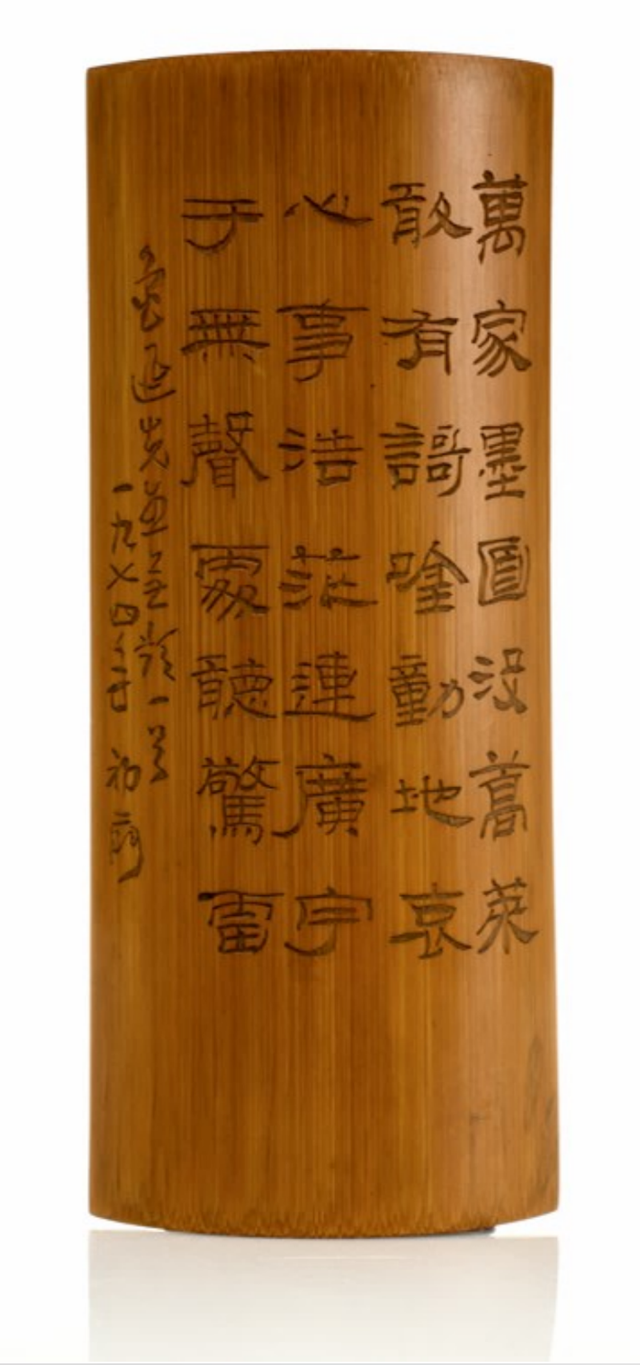 萬家墨面没蒿萊
敢有謌唫動地哀
心事浩茫連廣宇
于無聲處聽驚雷
魯迅先生無題一首
一九七四年初